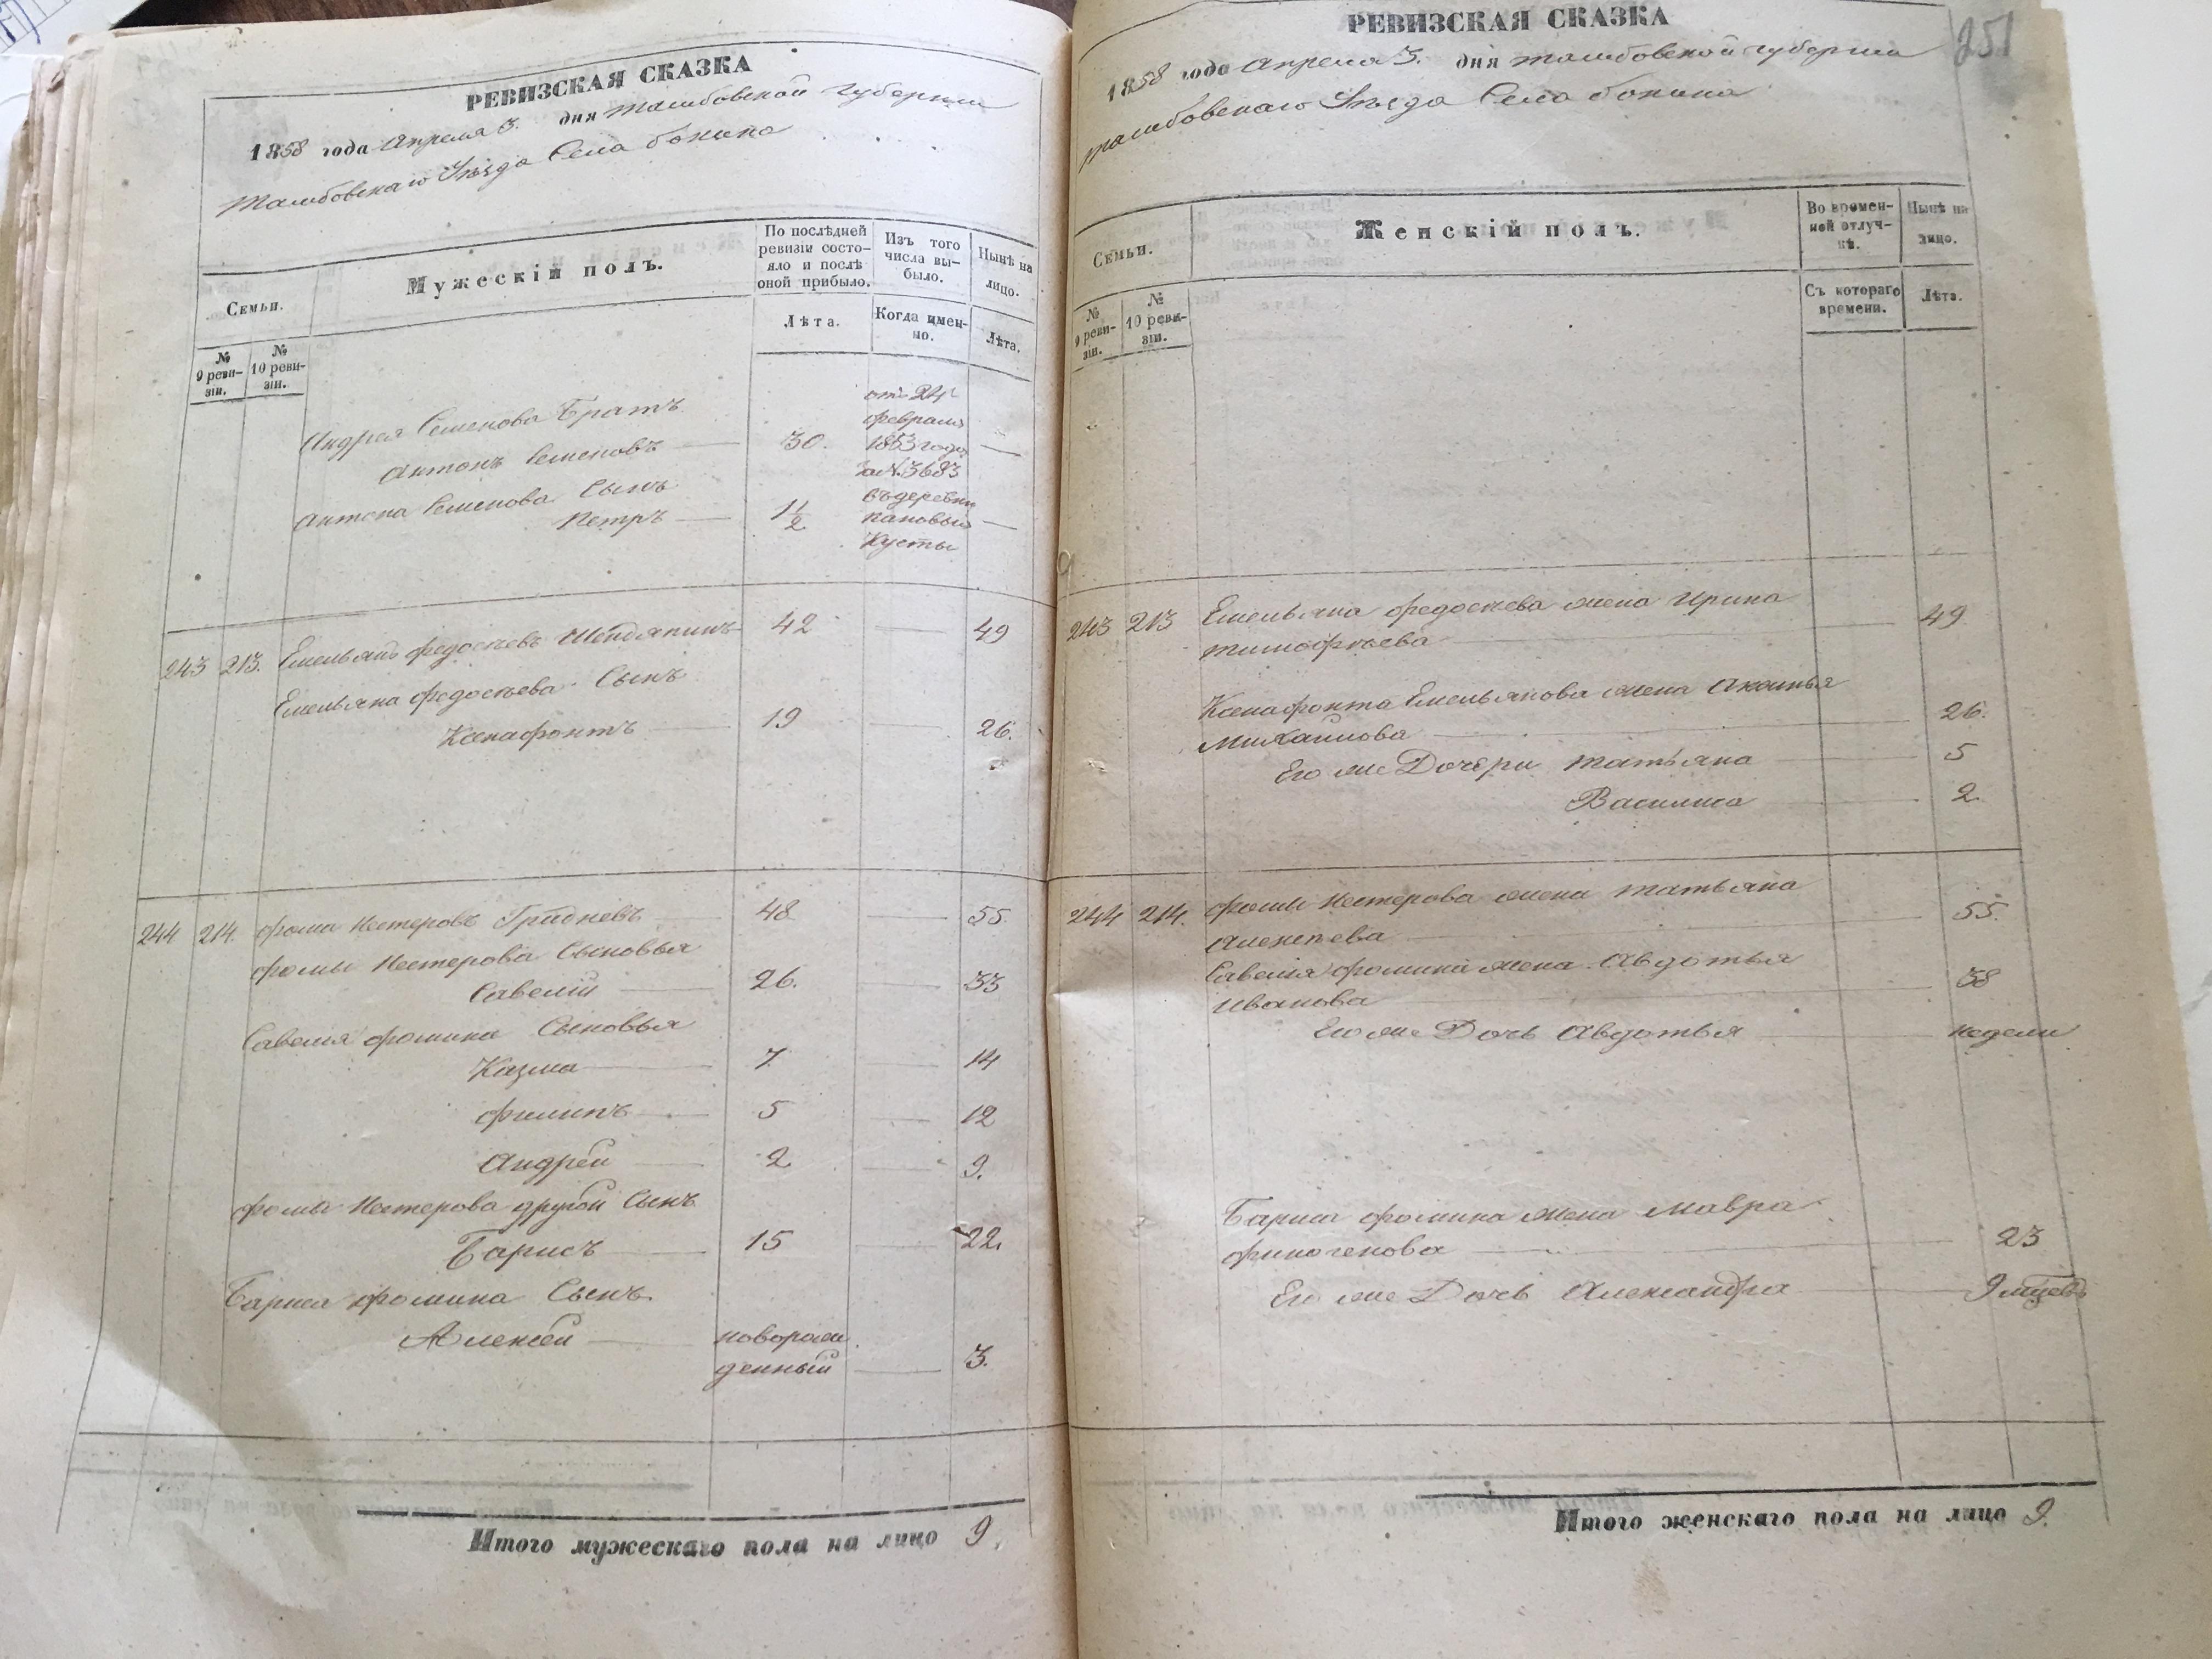 РЕВИЗСКАЯ СКАЗКА
1858 года Апреля 3. дня Тамбовской Губернии
Тамбовскаго Уѣзда Села Бокина
Семьи.
Мужескій полъ.
По послѣдней ревизіи состо-
яло и послѣ
оной прибыло.
Изъ того
числа вы-
было.
Нынѣ на
лицо.
№ 9 реви-
зіи.
№ 10 реви-
зіи.
Лѣта.
Когда имен-
но.
Лѣта.
Андрея Семенова Братъ
Антонъ Семеновъ 30.
Антона Семенова Сынъ
Петръ 1 1/2
отъ 24
февраля
1853 года
за №. 3683
въ деревни
пановыя
Кусты
243 213. Емельянъ федосѣевъ 42 49
Емельяна федосѣева Сынъ
Ксенафонтъ 19 26.
244 214. фома Нестеровъ Гридневъ 48 55
фомы Нестерова Сыновья
Савелій 26. 33
Савелія фомина Сыновья
Казма 7. 14
филипъ 5 12
Андрей 2 9.
фомы Нестерова другой Сынъ
Барисъ 15 22.
Бариса фомина Сынъ
Алексей новорож
денный 3.
Итого мужескаго пола на лицо 9.
РЕВИЗСКАЯ СКАЗКА
251
1858 года Апреля 3. дня Тамбовской Губернии
Тамбовскаго Уѣзда Села Бокина
Семьи.
Женскій полъ.
Во времен-
ной отлуч-
кѣ.
Нынѣ на
лицо.
№ 9 реви-
зіи.
№ 10 реви-
зіи.
Съ котораго
времени.
Лѣта.
243 213 Емельяна федосѣева жена Ирина
Тимофѣева 49
Ксенафонта Емельянова жена Аксинья
Михайлова 26.
Его же Дочери Татьяна 5
Василиса 2.
244 214. фомы Нестерова жена Татьяна
Алексѣева 55.
Савелія фомина жена Авдотья
Иванова 38
Его же Дочь Авдотья недели
Бариса фомина жена Мавра
финогенова 23
Его же Дочь Александра 9 мцевъ
Итого женскаго пола на лицо 9.